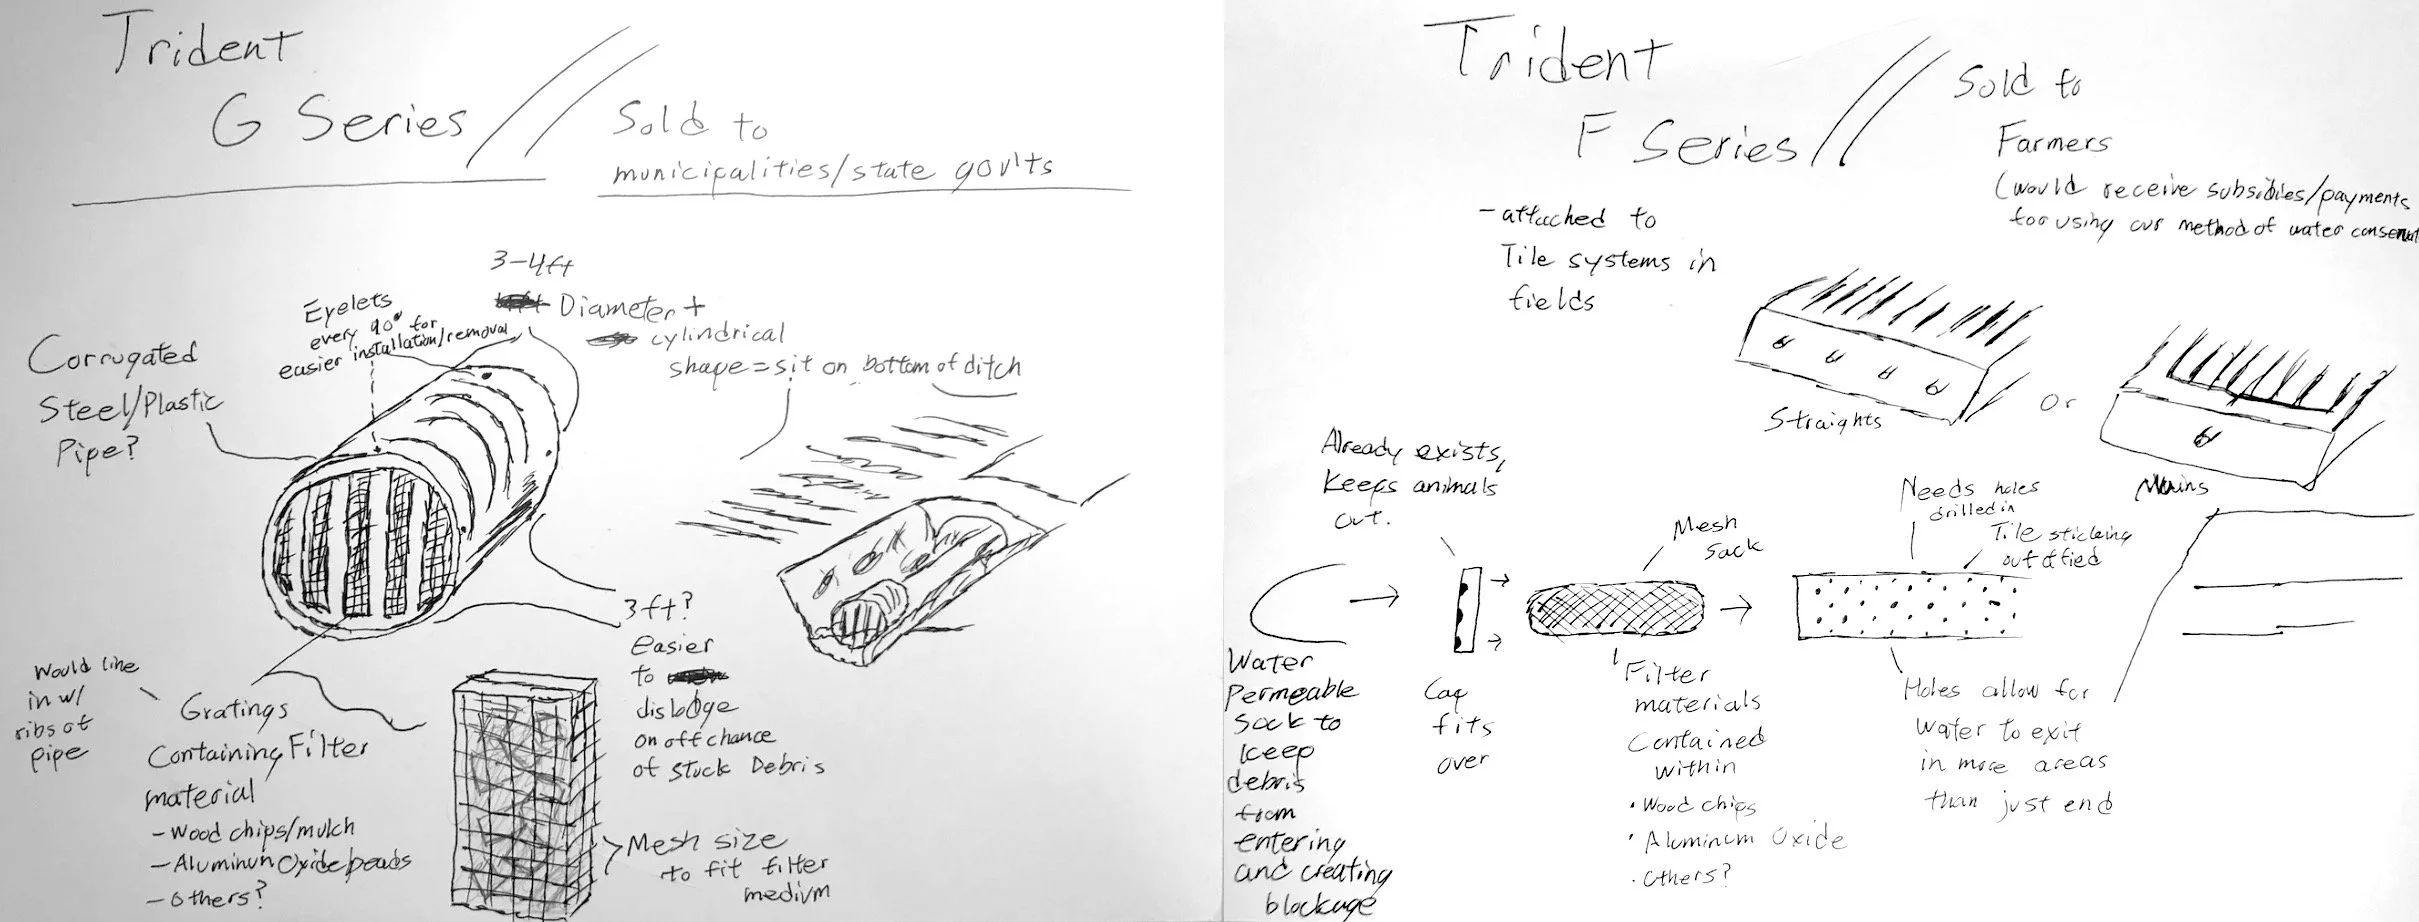 Trident
G Series
Sold to
municipalities/state gov'ts
3-4ft
Diameter +
cylindrical
shape = sit on bottom of ditch
Eyelets
every 90° for
easier installation/removal
Corrugated
Steel/Plastic
Pipe?
3ft?
Easier
to
dislodge
on off chance
of stuck Debris
Would line
in w/
ribs of
pipe
Gratings
Containing Filter
material
- Wood chips/mulch
- Aluminum Oxide beads
- Others?
Mesh size
to fit filter
medium
Trident
F Series
Sold to
Farmers
(would receive subsidies/payments
for using our method of water
- attached to
Tile systems in
fields
Straights
or
Mains
Already exists,
Keeps animals
out.
Mesh
Sack
Needs holes
drilled in
Tile sticking
out of
Water
Permeable
Sock to
keep
debris
from
entering
and creating
blockage
Cap
fits
over
Filter
materials
Contained
within
• Wood chips
• Aluminum Oxide
• Others?
Holes allow for
water to exit
in more areas
than just end